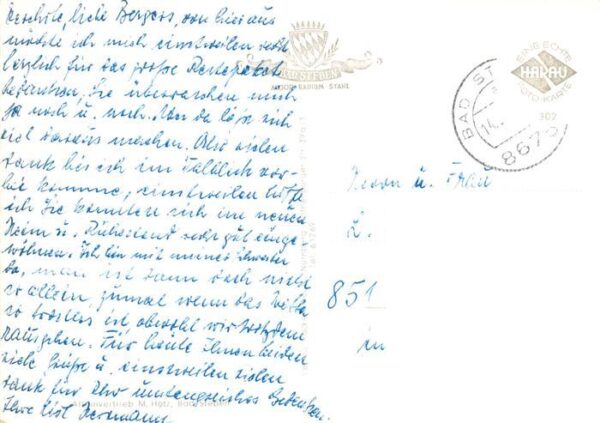 liebe Bergers, von hier aus
möchte ich mich einstweilen recht
herzlich für das große Restepaket
bedanken, Sie überraschen mich
ja noch u. noch. Aber da läßt sich
viel daraus machen. Also vielen
Dank bis ich im
komme, einstweilen hoffe
ich Sie konnten sich im neuen
Heim u. Ruhestand recht gut einge-
wöhnen. Ich bin mit meiner Schwester
da, man ist dann doch nicht
so allein, zumal wenn das Wetter
so trostlos ist, obwohl wir trotzdem
rausgehen. Für heute Ihnen beiden
viele Grüße u. einstweilen vielen
Dank für Ihr
Ihre
BAD STEBEN
MOOR RADIUM STAHL
EINE ECHTE
HARAU
FOTO-KARTE
302
BAD ST
14.
8675
Herrn u. Frau
L.
851
in
Alleinvertrieb M. Hotz, Bad Steben